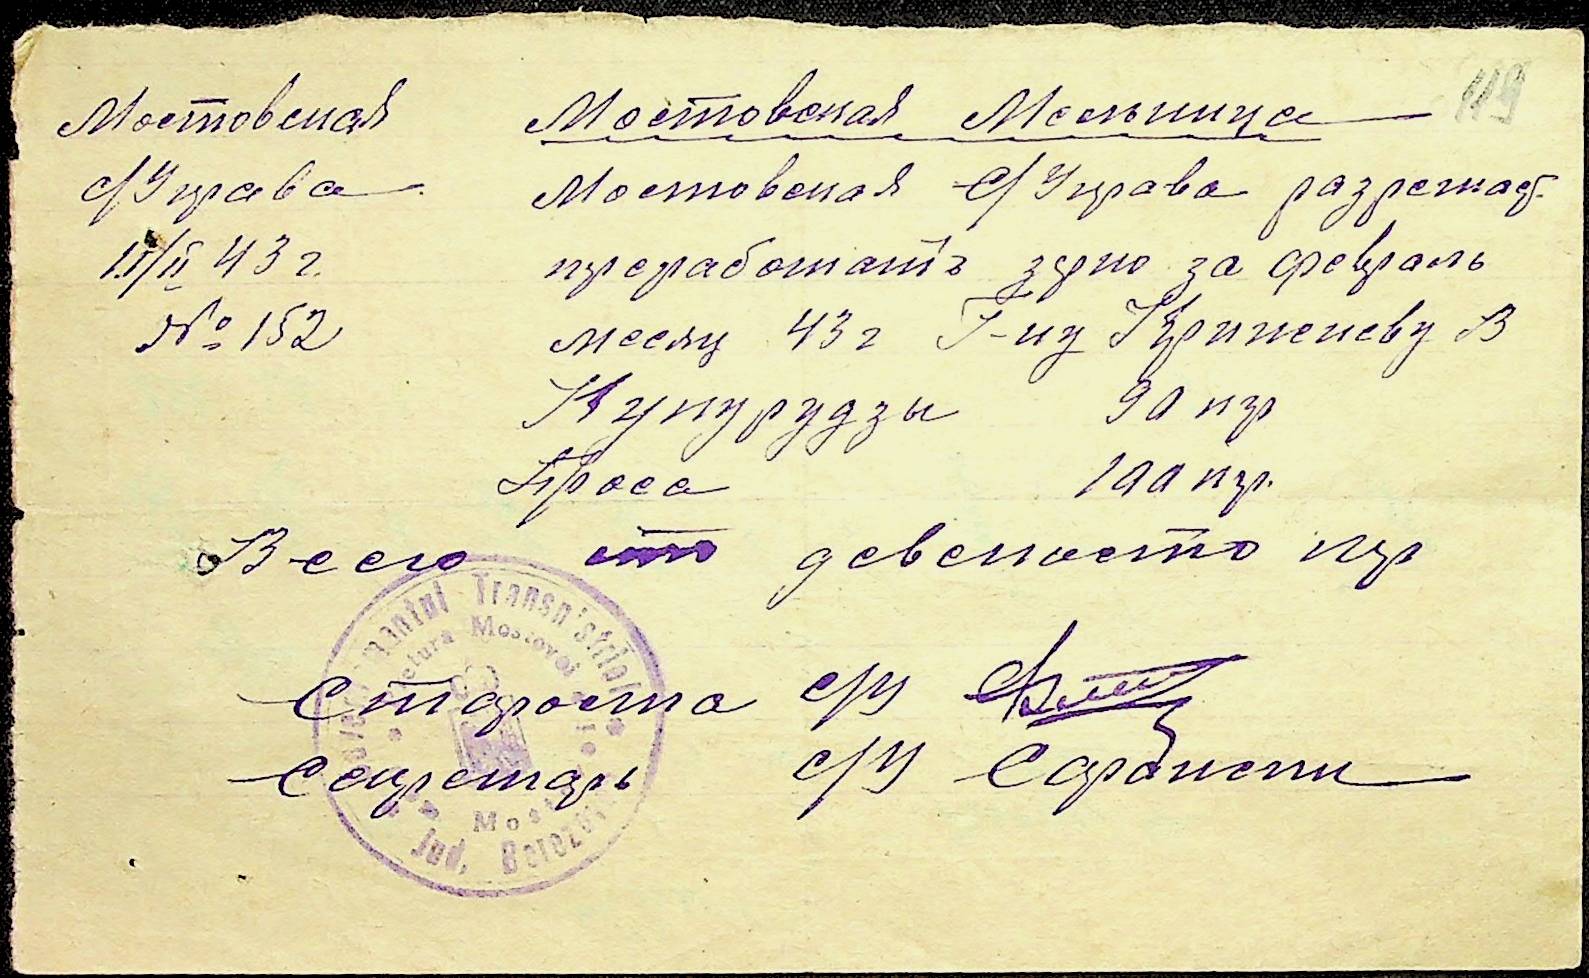 119
Мостовская
с/Управа
15/II 43 г.
№ 152
Мостовская Мельница
Мостовская С/Управа разрешает
преработать зерно за февраль
месяц 43 г Г-ну В
Кукурудзы 90 кгр
Проса 100 кгр.
Всего сто девеносто кгр
Староста с/У
Секретарь с/У
Guvernământul Transnistriei
Pretura Mostovoi
Mos
Jud. Berezovca